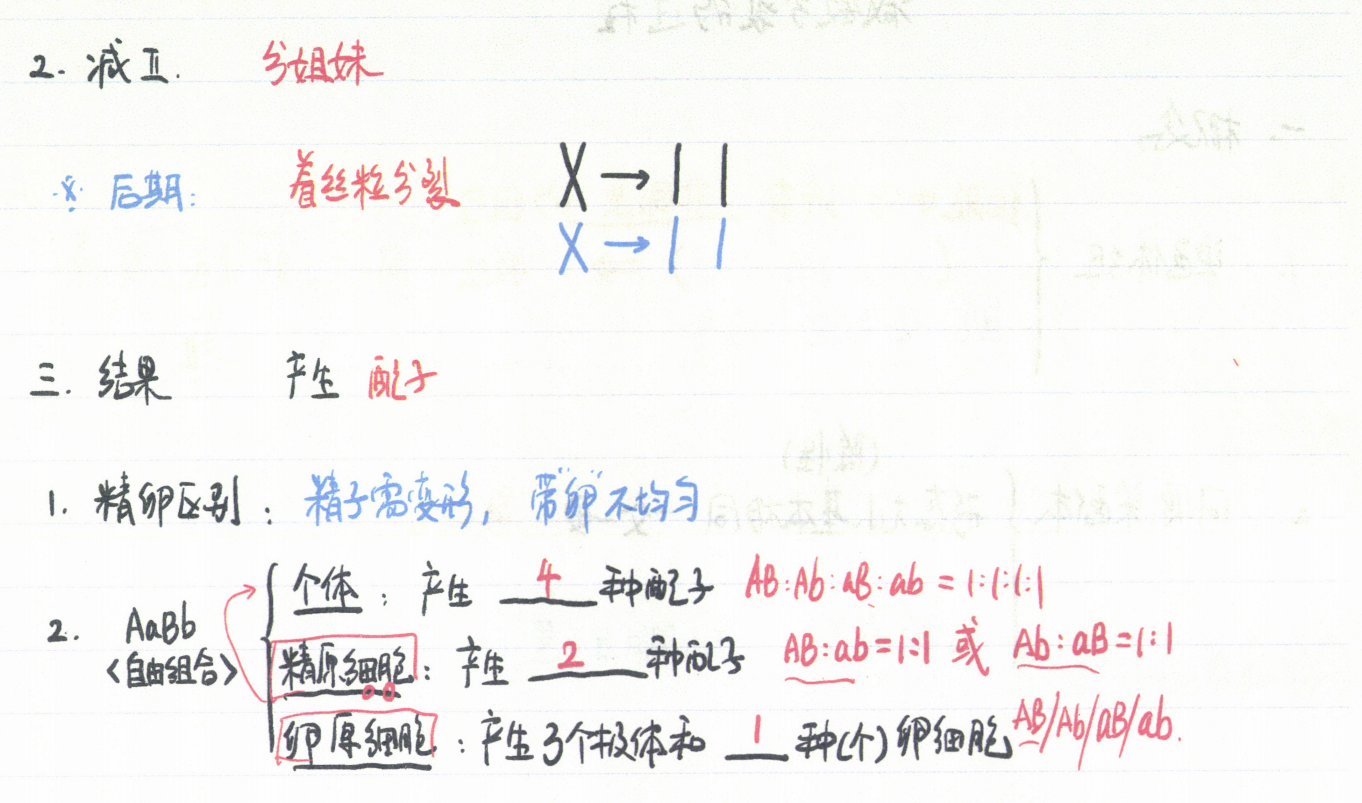 2. 减Ⅱ. 分姐妹
※ 后期: 着丝粒分裂 X→| |
X→| |
三. 结果 产生 配子
1. 精卵区别: 精子需变形, 带"卵"不均匀
个体: 产生 4 种配子 AB:Ab:aB:ab = 1:1:1:1
2. AaBb <自由组合> 精原细胞: 产生 2 种配子 AB:ab=1:1 或 Ab:aB=1:1
卵原细胞: 产生3个极体和 1 种(个)卵细胞 AB/Ab/aB/ab.